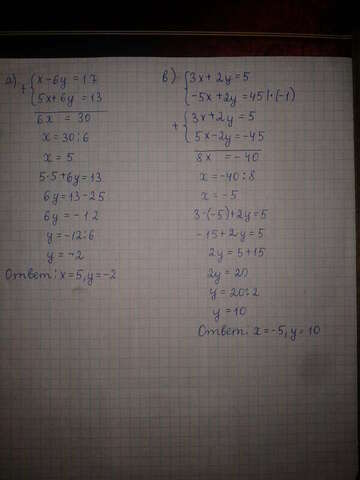 а) + { x - 6y = 17
5x + 6y = 13
6x = 30
x = 30 : 6
x = 5
5·5 + 6y = 13
6y = 13 - 25
6y = -12
y = -12 : 6
y = -2
Ответ: x = 5, y = -2
в) { 3x + 2y = 5
-5x + 2y = 45 | · (-1)
+ { 3x + 2y = 5
5x - 2y = -45
8x = -40
x = -40 : 8
x = -5
3·(-5) + 2y = 5
-15 + 2y = 5
2y = 5 + 15
2y = 20
y = 20 : 2
y = 10
Ответ: x = -5, y = 10